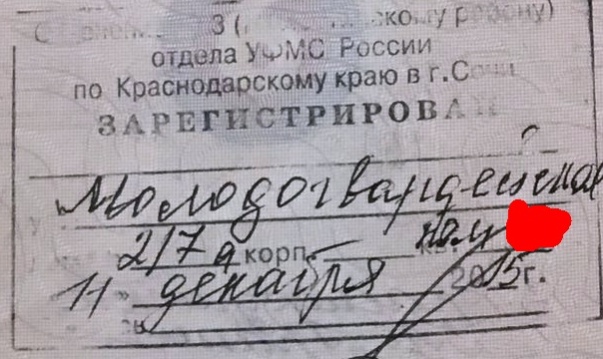 3 (
скому району)
отдела УФМС России
по Краснодарскому краю в г.Сочи
ЗАРЕГИСТРИРОВАН
Молодогвардейская
2/7 а корп. ком
11 декабря 2015г.